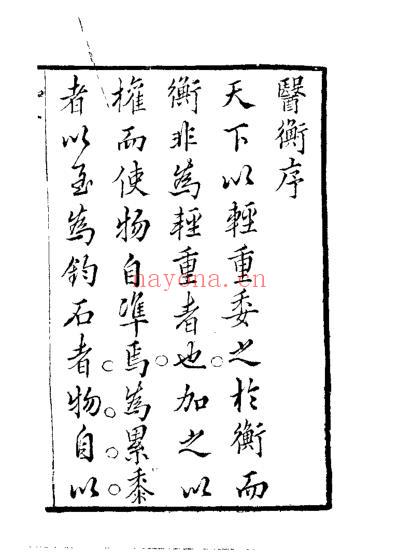 醫衡序
天下以輕重委之於衡而
衡非為輕重者也加之以
權而使物自準焉為累黍
者以至為鈞石者物自以
nayona.cn